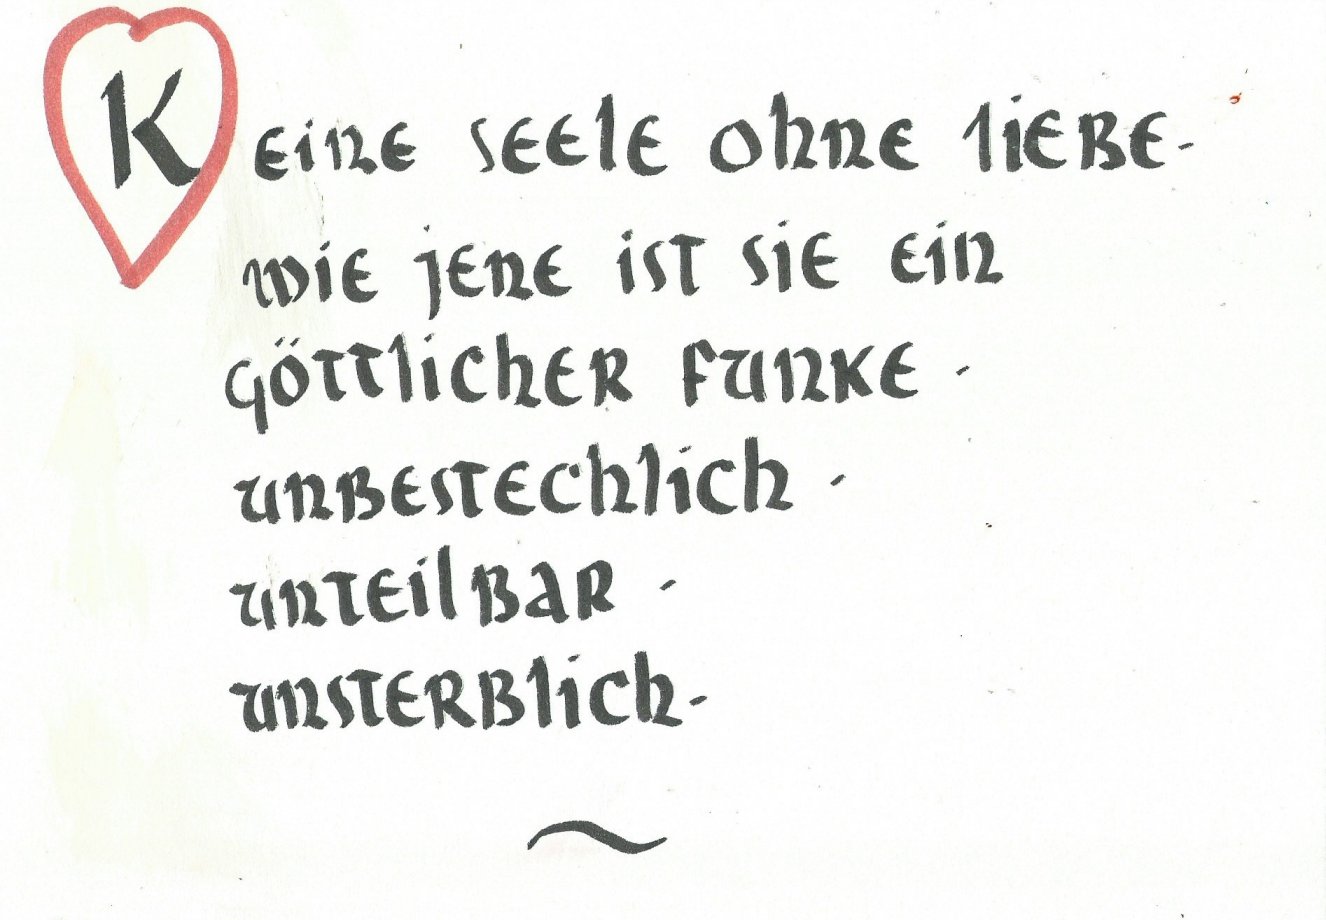 Keine seele ohne liebe-
wie jene ist sie ein
göttlicher funke ·
unbestechlich ·
unteilbar ·
unsterblich-